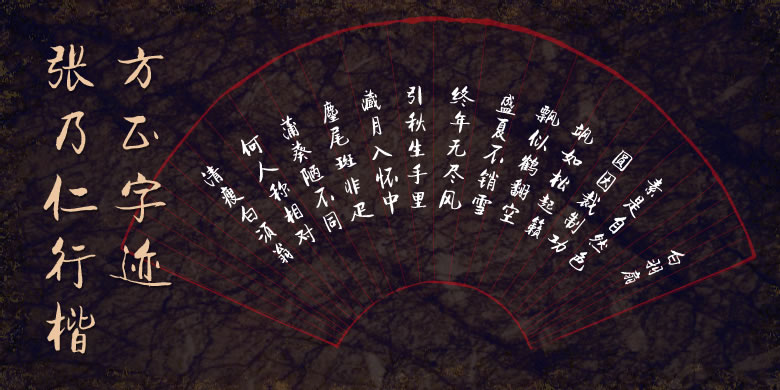 方正字迹
张乃仁行楷
白羽扇
素是自然色
圆因裁制功
飒如松起籁
飘似鹤翻空
盛夏不销雪
终年无尽风
引秋生手里
藏月入怀中
麈尾斑非疋
蒲葵陋不同
何人称相对
清瘦白须翁